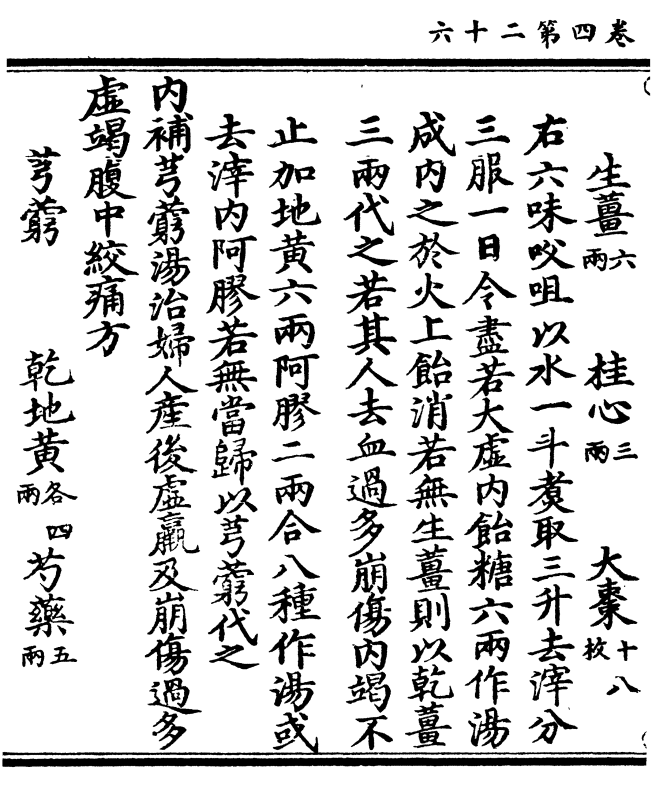 卷四第二十六
生薑六兩 桂心三兩 大棗十八枚
右六味㕮咀以水一斗煑取三升去滓分
三服一日令盡若大虛内飴糖六兩作湯
成内之於火上飴消若無生薑則以乾薑
三兩代之若其人去血過多崩傷内竭不
止加地黄六兩阿膠二兩合八種作湯或
去滓内阿膠若無當歸以芎藭代之
内補芎藭湯治婦人産後虛羸及崩傷過多
虛竭腹中絞痛方
芎藭 乾地黄各四兩 芍藥五兩